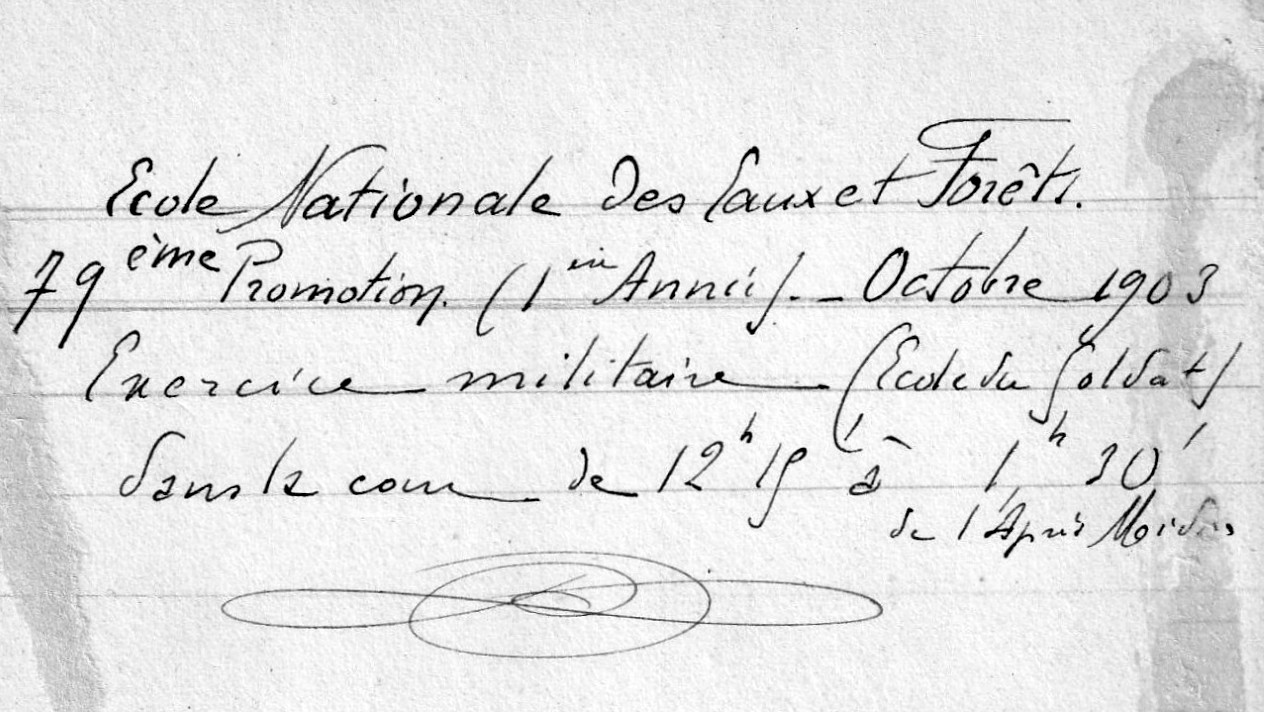 Ecole Nationale des Eaux et Forêts.
79ème Promotion. (1ère Année). - Octobre 1903
Exercice militaire (Ecole du Soldat)
dans la cour de 12h 15' à 1h 30'
de l'Après Midi